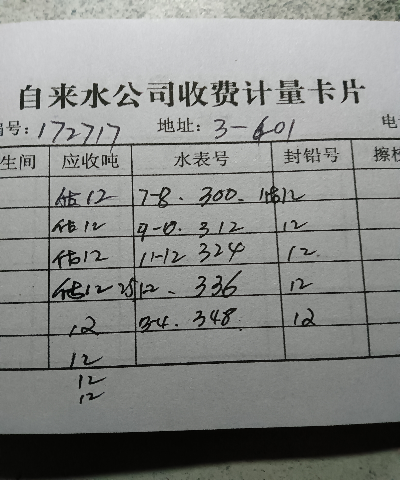 自来水公司收费计量卡片
编号: 172717 地址: 3-601 电
生间 应收吨 水表号 封铅号 擦校
估12 7-8. 300. 估12
估12 9-10. 312 12
估12 11-12 324 12.
估12 12. 336 12
12 3-4. 348. 12
12
12
12